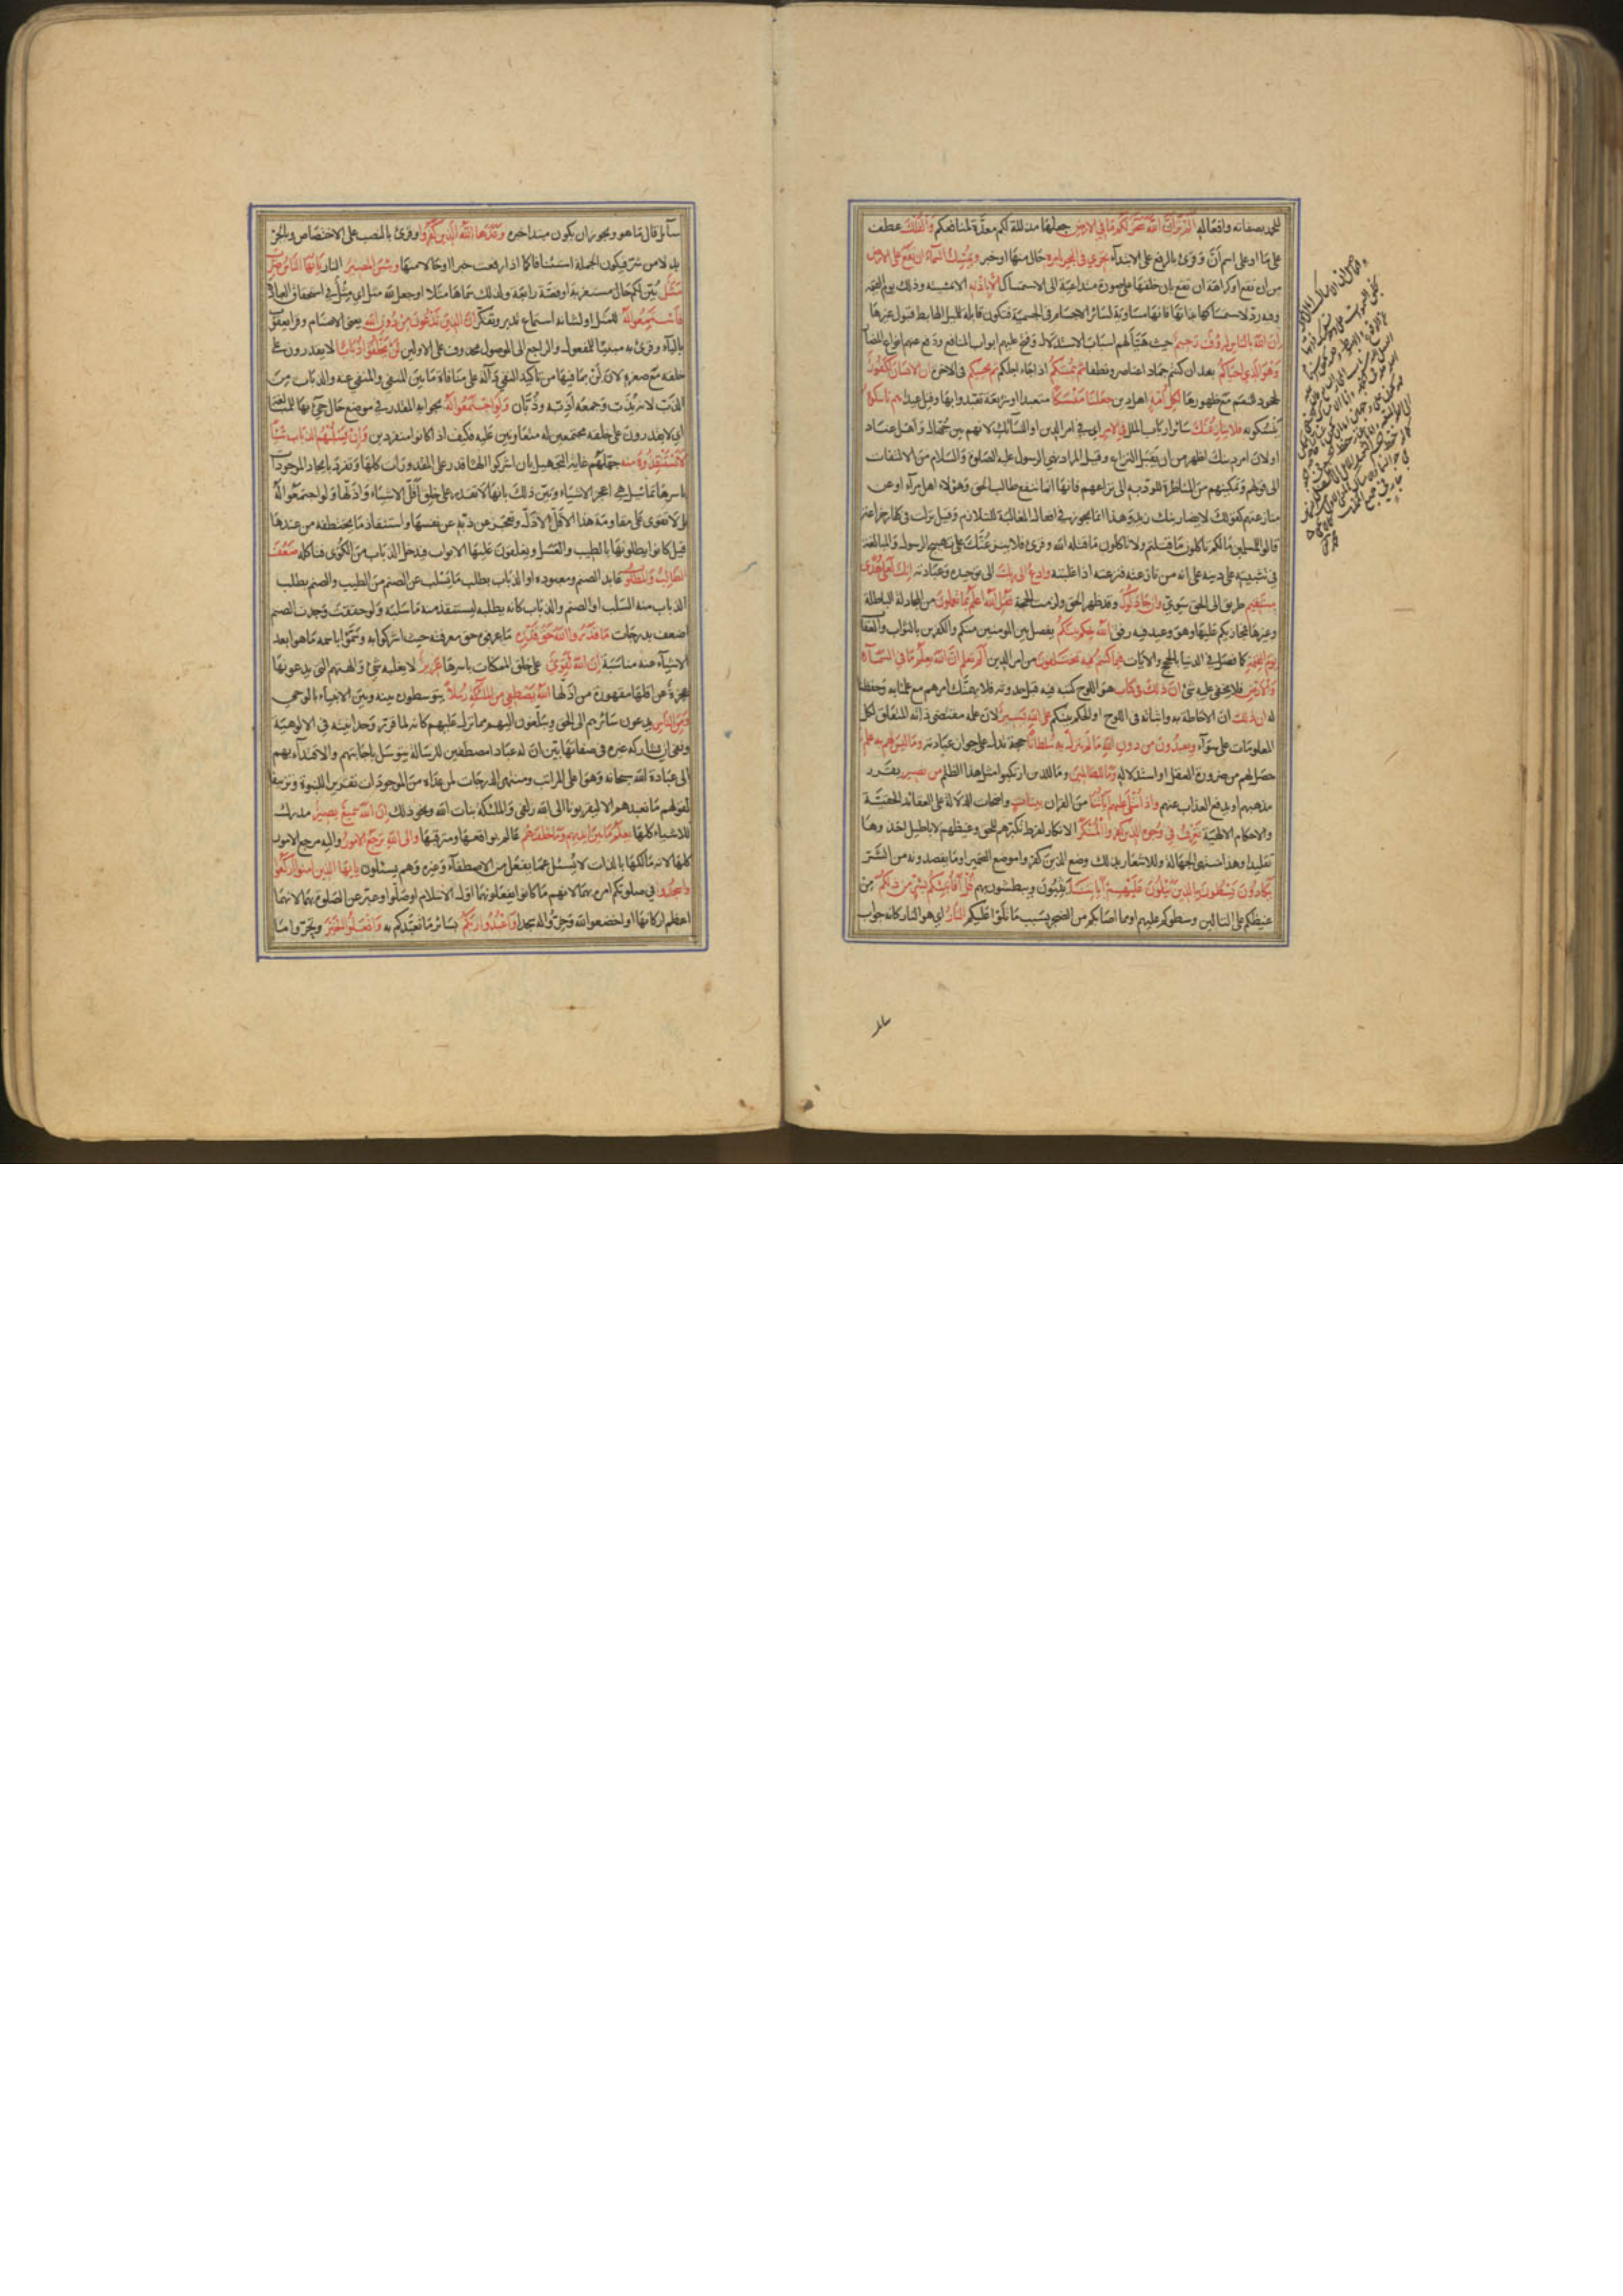 للحمد بصفاته وافعاله الم تر ان الله سخر لكم ما في الارض جعلها مذللة لكم معدة لمنافعكم والفلك عطف
على ما او على اسم ان وقرئ بالرفع على الابتداء تجري في البحر بامره حال منها او خبر ويمسك السماء ان تقع على الارض
من ان تقع او كراهة ان تقع بان خلقها على صورة متداعية الى الاستمساك الا باذنه الا بمشيته وذلك يوم القيمة
وفيه رد لاستمساكها بذاتها فانها مساوية لسائر الاجسام في الجسمية فتكون قابلة للميل الهابط قبول غيرها
ان الله بالناس لرؤف رحيم حيث هيأ لهم اسباب الاستدلال وفتح عليهم ابواب المنافع ودفع عنهم انواع المضار
وهو الذي احياكم بعد ان كنتم جمادا عناصر ونطفا ثم يميتكم اذا جاء اجلكم ثم يحييكم في الاخرة ان الانسان لكفور
لجحود للنعم مع ظهورها لكل امة اهل دين جعلنا منسكا متعبدا او شريعة تعبدوا بها وقيل عيدا هم ناسكوه
ينسكونه فلا ينازعنك سائر ارباب الملل في الامر اي في امر الدين او النسائك لانهم بين جهال واهل عناد
او لان امر دينك اظهر من ان يقبل النزاع وقيل المراد نهي الرسول عليه الصلوة والسلام من الالتفات
الى قولهم وتمكينهم من المناظرة المؤدية الى نزاعهم فانها انما تنفع طالب الحق وهؤلاء اهل مراء او عن
منازعتهم كقولك لا يضاربنك زيد وهذا انما يجوز في افعال المغالبة للتلازم وقيل نزلت في كفار خزاعة
قالوا للمسلمين ما لكم تاكلون ما قتلتم ولا تاكلون ما قتله الله وقرئ فلا ينزعنك على تهييج الرسول والمبالغة
في تثبيته على دينه على انه من نازعته فنزعته اذا غلبته وادع الى ربك الى توحيده وعبادته انك لعلى هدى
مستقيم طريق الى الحق سوي وان جادلوك وقد ظهر الحق ولزمت الحجة فقل الله اعلم بما تعملون من المجادلة الباطلة
وغيرها فيجازيكم عليها وهو وعيد فيه رفق الله يحكم بينكم يفصل بين المومنين منكم والكفرين بالثواب والعقاب
يوم القيمة كما فصل في الدنيا بالحجج والايات فيما كنتم فيه تختلفون من امر الدين الم تعلم ان الله يعلم ما في السماء
والارض فلا يخفى عليه شئ ان ذلك في كتاب هو اللوح كتبه فيه قبل حدوثه فلا يهمنك امرهم مع علمنا به وحفظنا
له ان ذلك ان الاحاطة به واثباته في اللوح او الحكم بينكم على الله يسير لان علمه مقتضى ذاته المتعلق بكل
المعلومات على سواء ويعبدون من دون الله ما لم ينزل به سلطانا حجة تدل على جواز عبادته وما ليس لهم به علم
حصل لهم من ضرورة العقل او استدلاله وما للظالمين وما للذين ارتكبوا مثل هذا الظلم من نصير يقرر
مذهبهم او يدفع العذاب عنهم واذا تتلى عليهم آياتنا من القران بينات واضحات الدلالة على العقائد الحقية
والاحكام الالهية تعرف في وجوه الذين كفروا المنكر الانكار لفرط نكيرهم للحق وغيظهم لاباطيل اخذوها
تقليدا وهذا منتهى الجهالة وللاشعار بذلك وضع الذين كفروا موضع الضمير او ما يقصدونه من الشر
يكادون يسطون بالذين يتلون عليهم آياتنا يثبون ويبطشون بهم قل افانبئكم بشر من ذلكم من
غيظكم على التالين وسطوكم عليهم او مما اصابكم من الضجر بسبب ما تلوا عليكم النار اي هو النار كانه جواب
سائل قال ما هو ويجوز ان يكون مبتدا خبره وعدها الله الذين كفروا وقرئ بالنصب على الاختصاص وبالجر
بدلا من شر فيكون الجملة استئنافا كما اذا رفعت خبرا او حالا منها وبئس المصير النار يا ايها الناس ضرب
مثل بين لكم حال مستغربة او قصة رائعة ولذلك سماها مثلا او جعل لله مثل اي مثل في استحقاق العبادة
فاستمعوا له للمثل او لشانه استماع تدبر وتفكر ان الذين تدعون من دون الله يعني الاصنام وقرا يعقوب
بالياء وقرئ به مبنيا للمفعول والراجع الى الموصول محذوف على الاولين لن يخلقوا ذبابا لا يقدرون على
خلقه مع صغره لان لن بما فيها من تاكيد النفي دالة على منافاة ما بين المنفي والمنفي عنه والذباب من
الذب لانه يذب وجمعه اذبة وذبان ولو اجتمعوا له بجوابه المقدر في موضع حال جئ بها للمبالغة
اي لا يقدرون على خلقه مجتمعين له متعاونين عليه فكيف اذا كانوا منفردين وان يسلبهم الذباب شيئا
لا يستنقذوه منه جهلهم غاية التجهيل بان اشركوا الها قدر على المقدورات كلها وتفرد بايجاد الموجودات
باسرها تماثيل هي اعجز الاشياء وبين ذلك بانها لا تقدر على خلق اقل الاشياء واذلها ولو اجتمعوا له
بل لا تقوى على مقاومة هذا الاقل الاذل وتعجز عن ذبه عن نفسها واستنقاذ ما يختطفه من عندها
قيل كانوا يطلونها بالطيب والعسل ويغلقون عليها الابواب فيدخل الذباب من الكوى فتاكله ضعف
الطالب والمطلوب عابد الصنم ومعبوده او الذباب يطلب ما يسلب عن الصنم من الطيب والصنم يطلب
الذباب منه السلب او الصنم والذباب كانه يطلبه ليستنقذ منه ما سلبه ولو حققت وجدت الصنم
اضعف بدرجات ما قدروا الله حق قدره ما عرفوه حق معرفته حيث اشركوا به وسموا باسمه ما هو ابعد
الاشياء عنه مناسبة ان الله لقوي على خلق الممكنات باسرها عزيز لا يغلبه شئ والهتهم التي يدعونها
عجزة عن اقلها مقهورة من اذلها الله يصطفي من الملئكة رسلا يتوسطون بينه وبين الانبياء بالوحي
ومن الناس يدعون سائرهم الى الحق ويبلغون اليهم ما نزل عليهم كانه لما قرر وحدانيته في الالوهية
ونفى ان يشاركه غيره في صفاتها بين ان له عبادا مصطفين للرسالة يتوسل باجابتهم والاقتداء بهم
الى عبادة الله سبحانه وهو اعلى المراتب ومنتهى الدرجات لمن عداه من الموجودات تقريرا للنبوة وتزييفا
لقولهم ما نعبدهم الا ليقربونا الى الله زلفى والملئكة بنات الله ونحو ذلك ان الله سميع بصير مدرك
للاشياء كلها يعلم ما بين ايديهم وما خلفهم عالم بواقعها ومترقبها والى الله ترجع الامور واليه مرجع الامور
كلها لانه مالكها بالذات لا يسئل عما يفعل من الاصطفاء وغيره وهم يسئلون يا ايها الذين امنوا اركعوا
واسجدوا في صلوتكم امرهم بهما لانهم ما كانوا يفعلونهما اول الاسلام او صلوا وعبر عن الصلوة بهما لانهما
اعظم اركانها او اخضعوا لله وخروا له سجدا واعبدوا ربكم بسائر ما تعبدكم به وافعلوا الخير وتحروا ما